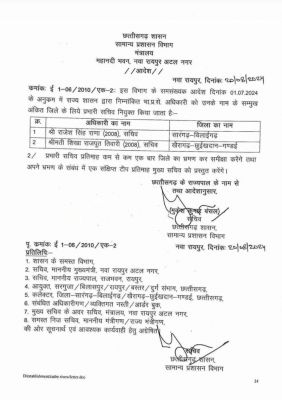 छत्तीसगढ़ शासन
सामान्य प्रशासन विभाग
मंत्रालय
महानदी भवन, नवा रायपुर अटल नगर
//आदेश//
नवा रायपुर, दिनांक 20/08/2024
क्रमांक: ई 1-06/2010/एक-2: इस विभाग के समसंख्यक आदेश दिनांक 01.07.2024
के अनुक्रम में राज्य शासन द्वारा निम्नांकित भा.प्र.से. अधिकारी को उनके नाम के सम्मुख
अंकित जिले के लिये प्रभारी सचिव नियुक्त किया जाता है:-
क्र. अधिकारी का नाम जिला का नाम
1 श्री राजेश सिंह राणा (2008), सचिव सारंगढ़-बिलाईगढ़
2 श्रीमती शिखा राजपूत तिवारी (2008), सचिव खैरागढ़-छुईखदान-गण्डई
2/ प्रभारी सचिव प्रतिमाह कम से कम एक बार जिले का भ्रमण कर समीक्षा करेंगे तथा
अपने भ्रमण के संबंध में एक संक्षिप्त टीप प्रतिमाह मुख्य सचिव को प्रस्तुत करेंगे।
छत्तीसगढ़ के राज्यपाल के नाम से
तथा आदेशानुसार,
(मुकेश कुमार बंसल)
सचिव
छत्तीसगढ़ शासन,
सामान्य प्रशासन विभाग
पृ. क्रमांक: ई 1-06/2010/एक-2 नवा रायपुर, दिनांक 20/08/2024
प्रतिलिपि:-
1. शासन के समस्त विभाग,
2. सचिव, माननीय मुख्यमंत्री, नवा रायपुर अटल नगर,
3. सचिव, माननीय राज्यपाल, राजभवन, रायपुर,
4. आयुक्त, सरगुजा/बिलासपुर/रायपुर/बस्तर/दुर्ग संभाग, छत्तीसगढ़,
5. कलेक्टर, जिला-सारंगढ़-बिलाईगढ़/खैरागढ़-छुईखदान-गण्डई, छत्तीसगढ़,
6. संबंधित अधिकारीगण/व्यक्तिगत नस्ती/आर्डर बुक,
7. मुख्य सचिव के अवर सचिव, मंत्रालय, नवा रायपुर अटल नगर,
8. समस्त निज सचिव, माननीय मंत्रीगण/राज्य मंत्रीगण,
की ओर सूचनार्थ एवं आवश्यक कार्यवाही हेतु अग्रेषित।
सचिव
छत्तीसगढ़ शासन
सामान्य प्रशासन विभाग
24